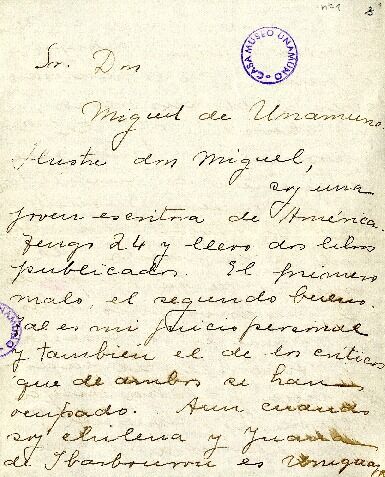 nº 1
Sr. Don
CASA MUSEO UNAMUNO
Miguel de Unamuno
Ilustre don Miguel,
soy una
joven escritora de América.
Tengo 24 y llevo dos libros
publicados. El primero
malo, el segundo bueno.
Tal es mi juicio personal
y también el de los críticos
que de ambos se han
ocupado. Aun cuando
soy chilena y Juana
de Ibarbourou es Uruguaya